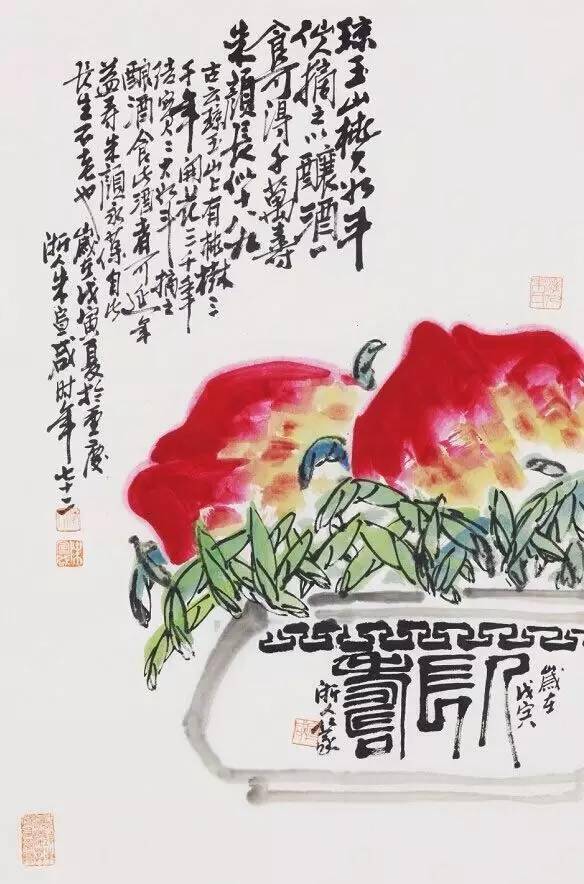 琼玉山桃大如斗
仸摘之以釀酒一
食可得千萬壽
朱顏長似十八九
古云琼玉山上有桃樹三
千年開花三千年
結實實大如斗摘之
釀酒食此酒者可延年
益壽朱顏永葆自此
長生不老也 歲在戊寅夏於重慶
浙人朱宣咸時年七十二
歲在
戊寅
人長壽
浙人